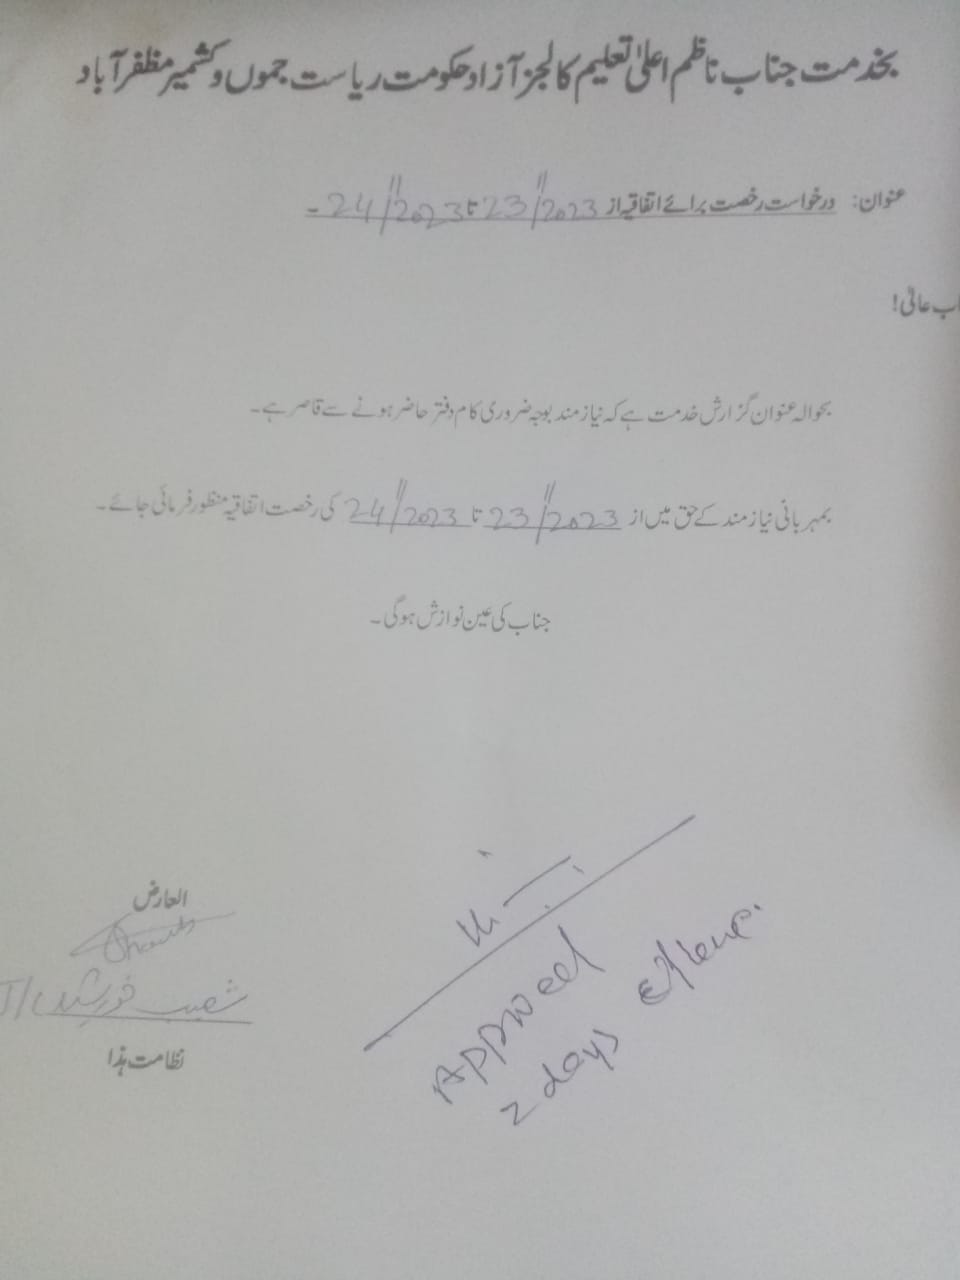 بخدمت جناب ناظم اعلیٰ تعلیم کالجز آزاد حکومت ریاست جموں و کشمیر مظفر آباد
عنوان: درخواست رخصت برائے اتفاقیہ از 23/11/2023 تا 24/11/2023 ۔
جناب عالی!
بحوالہ عنوان گزارش خدمت ہے کہ نیاز مند بوجہ ضروری کام دفتر حاضر ہونے سے قاصر ہے۔
بمہربانی نیاز مند کے حق میں از 23/11/2023 تا 24/11/2023 کی رخصت اتفاقیہ منظور فرمائی جائے۔
جناب کی عین نوازش ہوگی۔
العارض
شعیب خورشید
نظامت ہذا
Approved
2 days